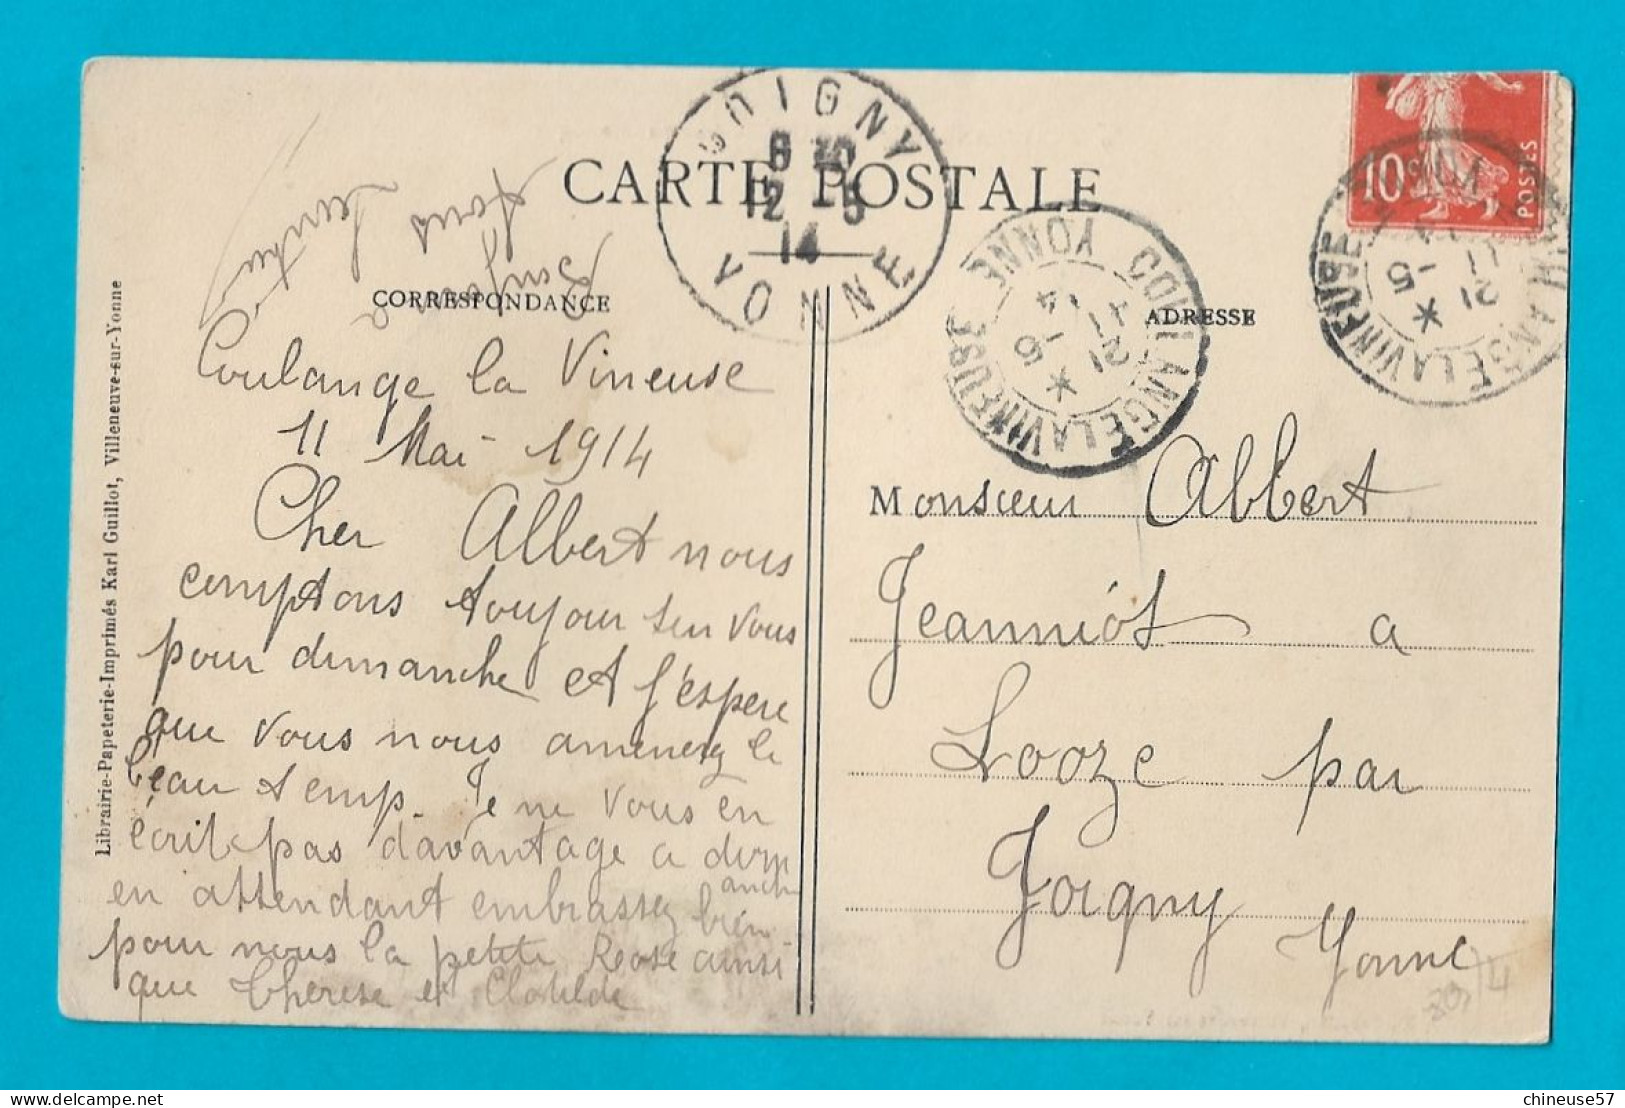 CARTE POSTALE
CORRESPONDANCE
ADRESSE
Librairie-Papeterie-Imprimés Karl Guillot, Villeneuve-sur-Yonne
JOIGNY
8 30
12 - 5
14
YONNE
COULANGE LA VINEUSE
YONNE
21
11 - 5
14
COULANGE LA VINEUSE
YONNE
21
11 - 5
10c
POSTES
Coulange la Vineuse
11 Mai 1914
Cher Albert nous
comptons toujour sur vous
pour dimanche et j'espere
que vous nous amenerez le
beau temp. Je ne vous en
écrit pas davantage a dim
anche
en attendant embrassez bien
pour nous la petite Rose ainsi
que Therese et Clotilde
Monsieur Albert
Jeanniot a
Looze par
Joigny
Yonne
chineuse57